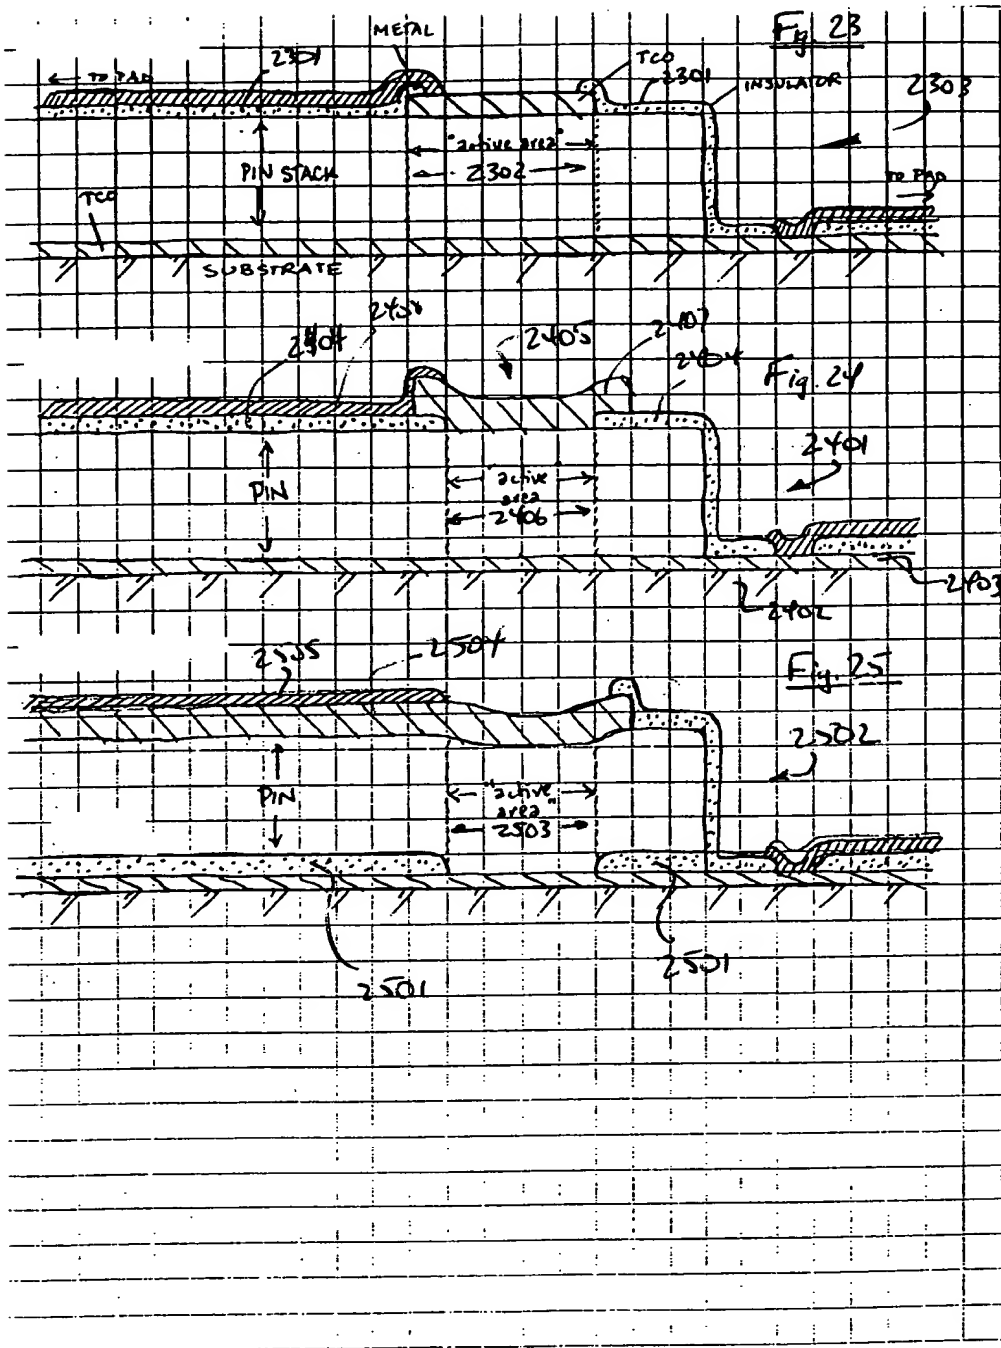 Fig. 23
METAL
← TO PAD
2301
TCO
2301
INSULATOR
2303
"active area"
2302
PIN STACK
TCO
TO PAD
SUBSTRATE
2404
2405
2407
2404
Fig. 24
2401
PIN
"active
area
2406
2403
2402
2505
2504
Fig. 25
2502
PIN
"active
area"
2503
2501
2501